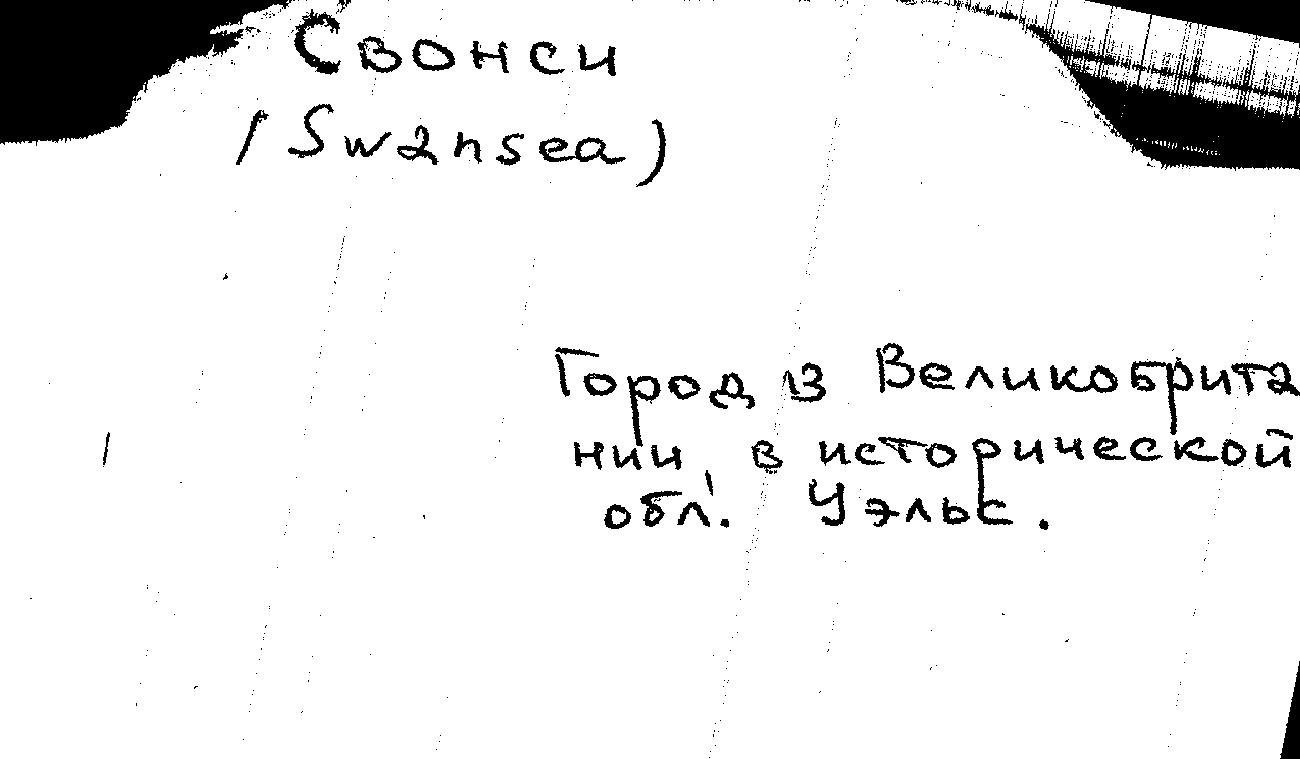 Свонси
(Swansea)
Город в Великобрита
нии, в исторической
обл. Уэльс.